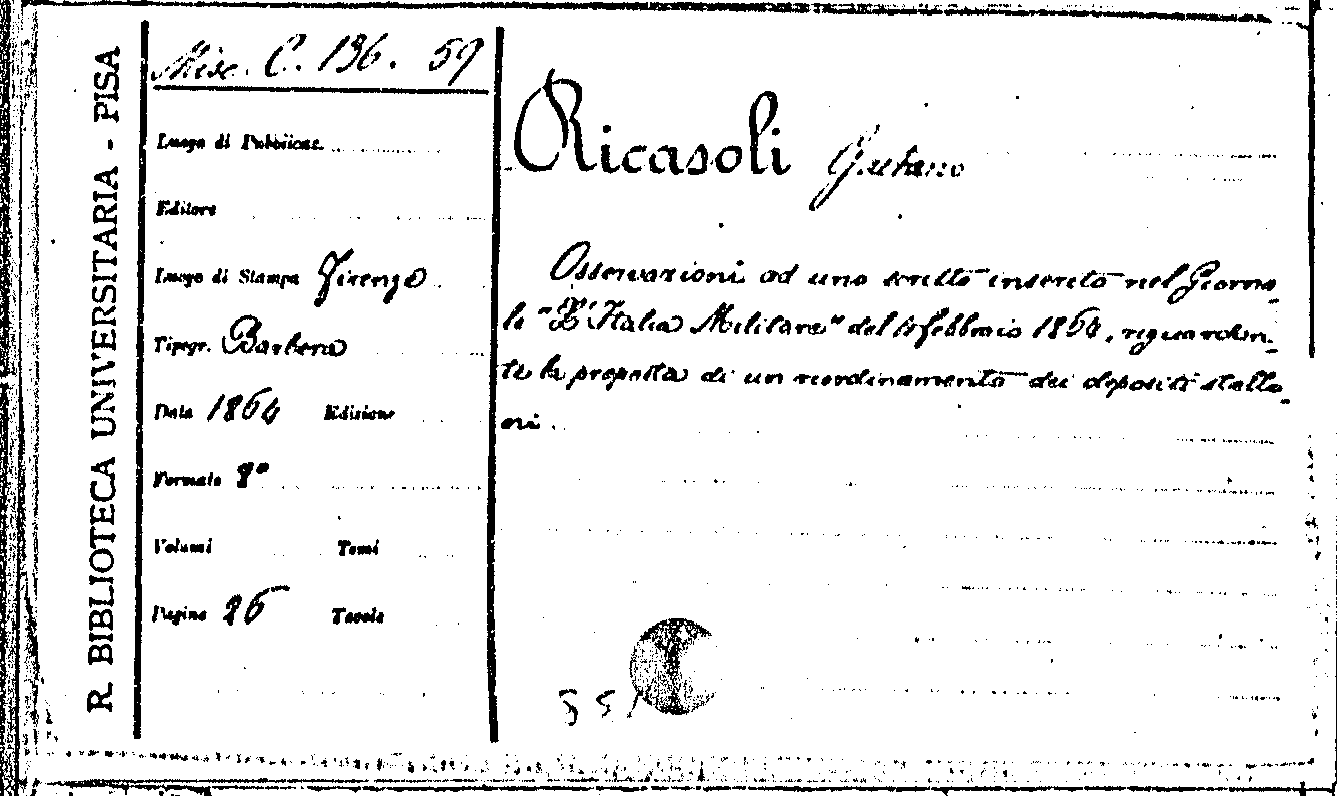 R. BIBLIOTECA UNIVERSITARIA - PISA
Misc. C. 136. 59
Luogo di Pubblicaz.
Editore
Luogo di Stampa Firenze
Tipogr. Barbera
Data 1864 Edizione
Formato 8º
Volumi Tomi
Pagine 26 Tavole
Ricasoli Gaetano
Osservazioni ad uno scritto inserito nel Giorna_
le "L'Italia Militare" del febbraio 1864, riguardan_
te la proposta di un riordinamento dei depositi stallo_
ni.
551